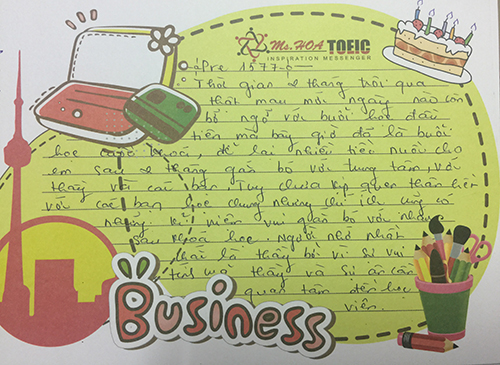 Ms. HOA TOEIC
INSPIRATION MESSENGER
Pre 1577
Thời gian 2 tháng trôi qua
thật mau mới ngày nào còn
bỡ ngỡ với buổi học đầu
tiên mà bây giờ đã là buổi
học cuối khoá, để lại nhiều tiếc nuối cho
em sau 2 tháng gắn bó với trung tâm, với
thầy và các bạn. Tuy chưa kịp quen thân hết
với các bạn học chung nhưng ít cũng có
những kỉ niệm vui gắn bó với nhau
sau khoá học. Người nhớ nhất
chắc là thầy bởi vì sự vui
tính mà thầy và sự ân cần
quan tâm đến học
viên.
BUSINESS